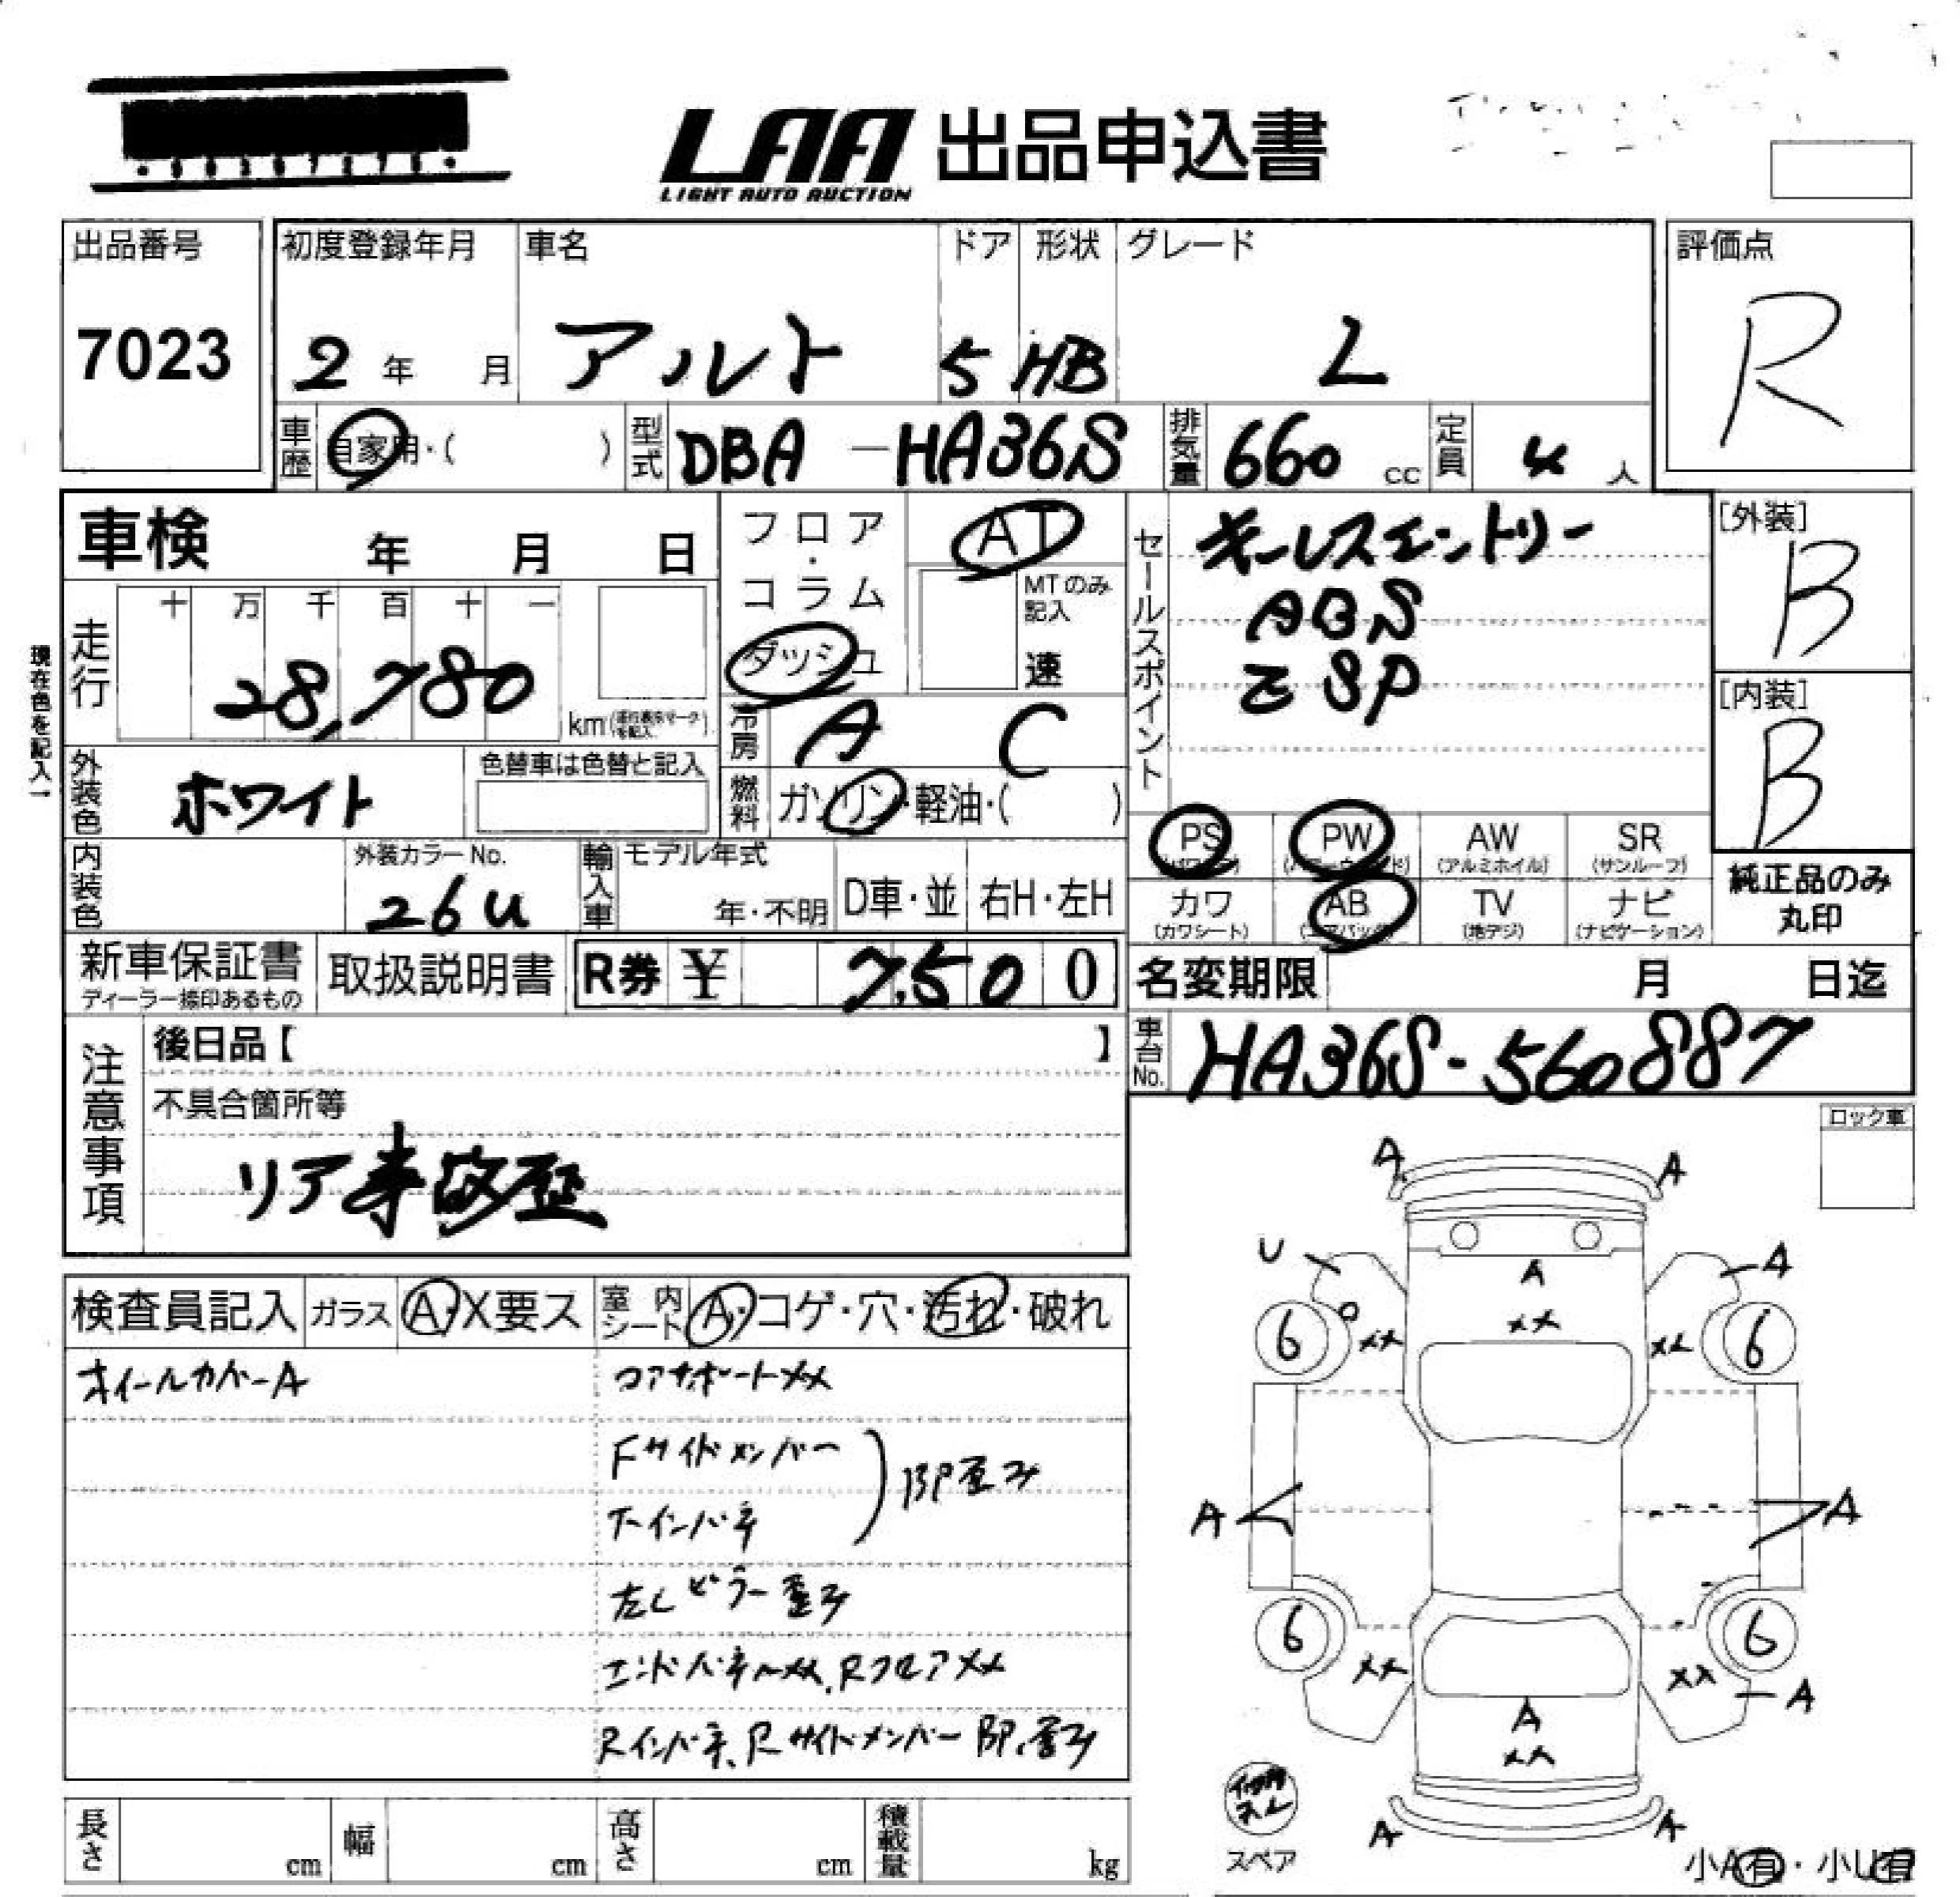 LAA 出品申込書
LIGHT AUTO AUCTION
出品番号 初度登録年月 車名 ドア 形状 グレード 評価点
7023 2年 月 アルト 5 HB L R
車歴 自家用・( ) 型式 DBA-HA36S 排気量 660cc 定員 4人
車検 年 月 日
フロア・コラム
ダッシュ
AT
MTのみ記入
速
セールスポイント
キーレスエントリー
ABS
ESP
[外装]
B
[内装]
B
現在色を記入→
走行 十 万 千 百 十 一
28,780 km
冷房 A C
外装色 ホワイト 色替車は色替と記入
燃料 ガソリン・軽油・( )
PS PW AW (アルミホイル) SR (サンルーフ)
カワ (カワシート) AB TV (地デジ) ナビ (ナビゲーション)
純正品のみ
丸印
内装色 外装カラーNo. 26U 輸入車 モデル年式 年・不明 D車・並 右H・左H
新車保証書 取扱説明書 R券 ¥ 7,500
ディーラー捺印あるもの
名変期限 月 日迄
車台No. HA36S-560887
注意事項
後日品【 】
不具合箇所等
リア事故歪
ロック車
検査員記入 ガラス A・X要ス 室内シート A・コゲ・穴・汚れ・破れ
ホイールカバーA コアサポートXX
Fサイドメンバー
Fインパネ
BP歪み
左Cピラー歪み
エンドパネルXX、RフロアXX
Rインパネ、Rサイドメンバー BP、歪み
A A
U A
A
XX
6 XX XX 6
A A
6 6
XX XX
A
A
XX
A A
スペア
小A有・小U有
長さ cm 幅 cm 高さ cm 積載量 kg